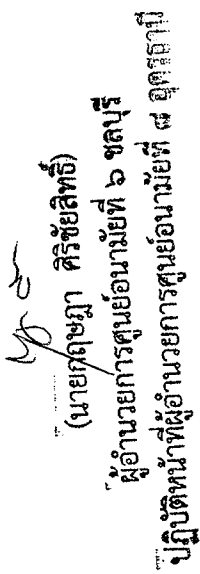 (นายกฤษฎา ศิริชัยสิทธิ์)
ผู้อำนวยการศูนย์อนามัยที่ ๖ ชลบุรี
ปฏิบัติหน้าที่ผู้อำนวยการศูนย์อนามัยที่ ๘ อุดรธานี